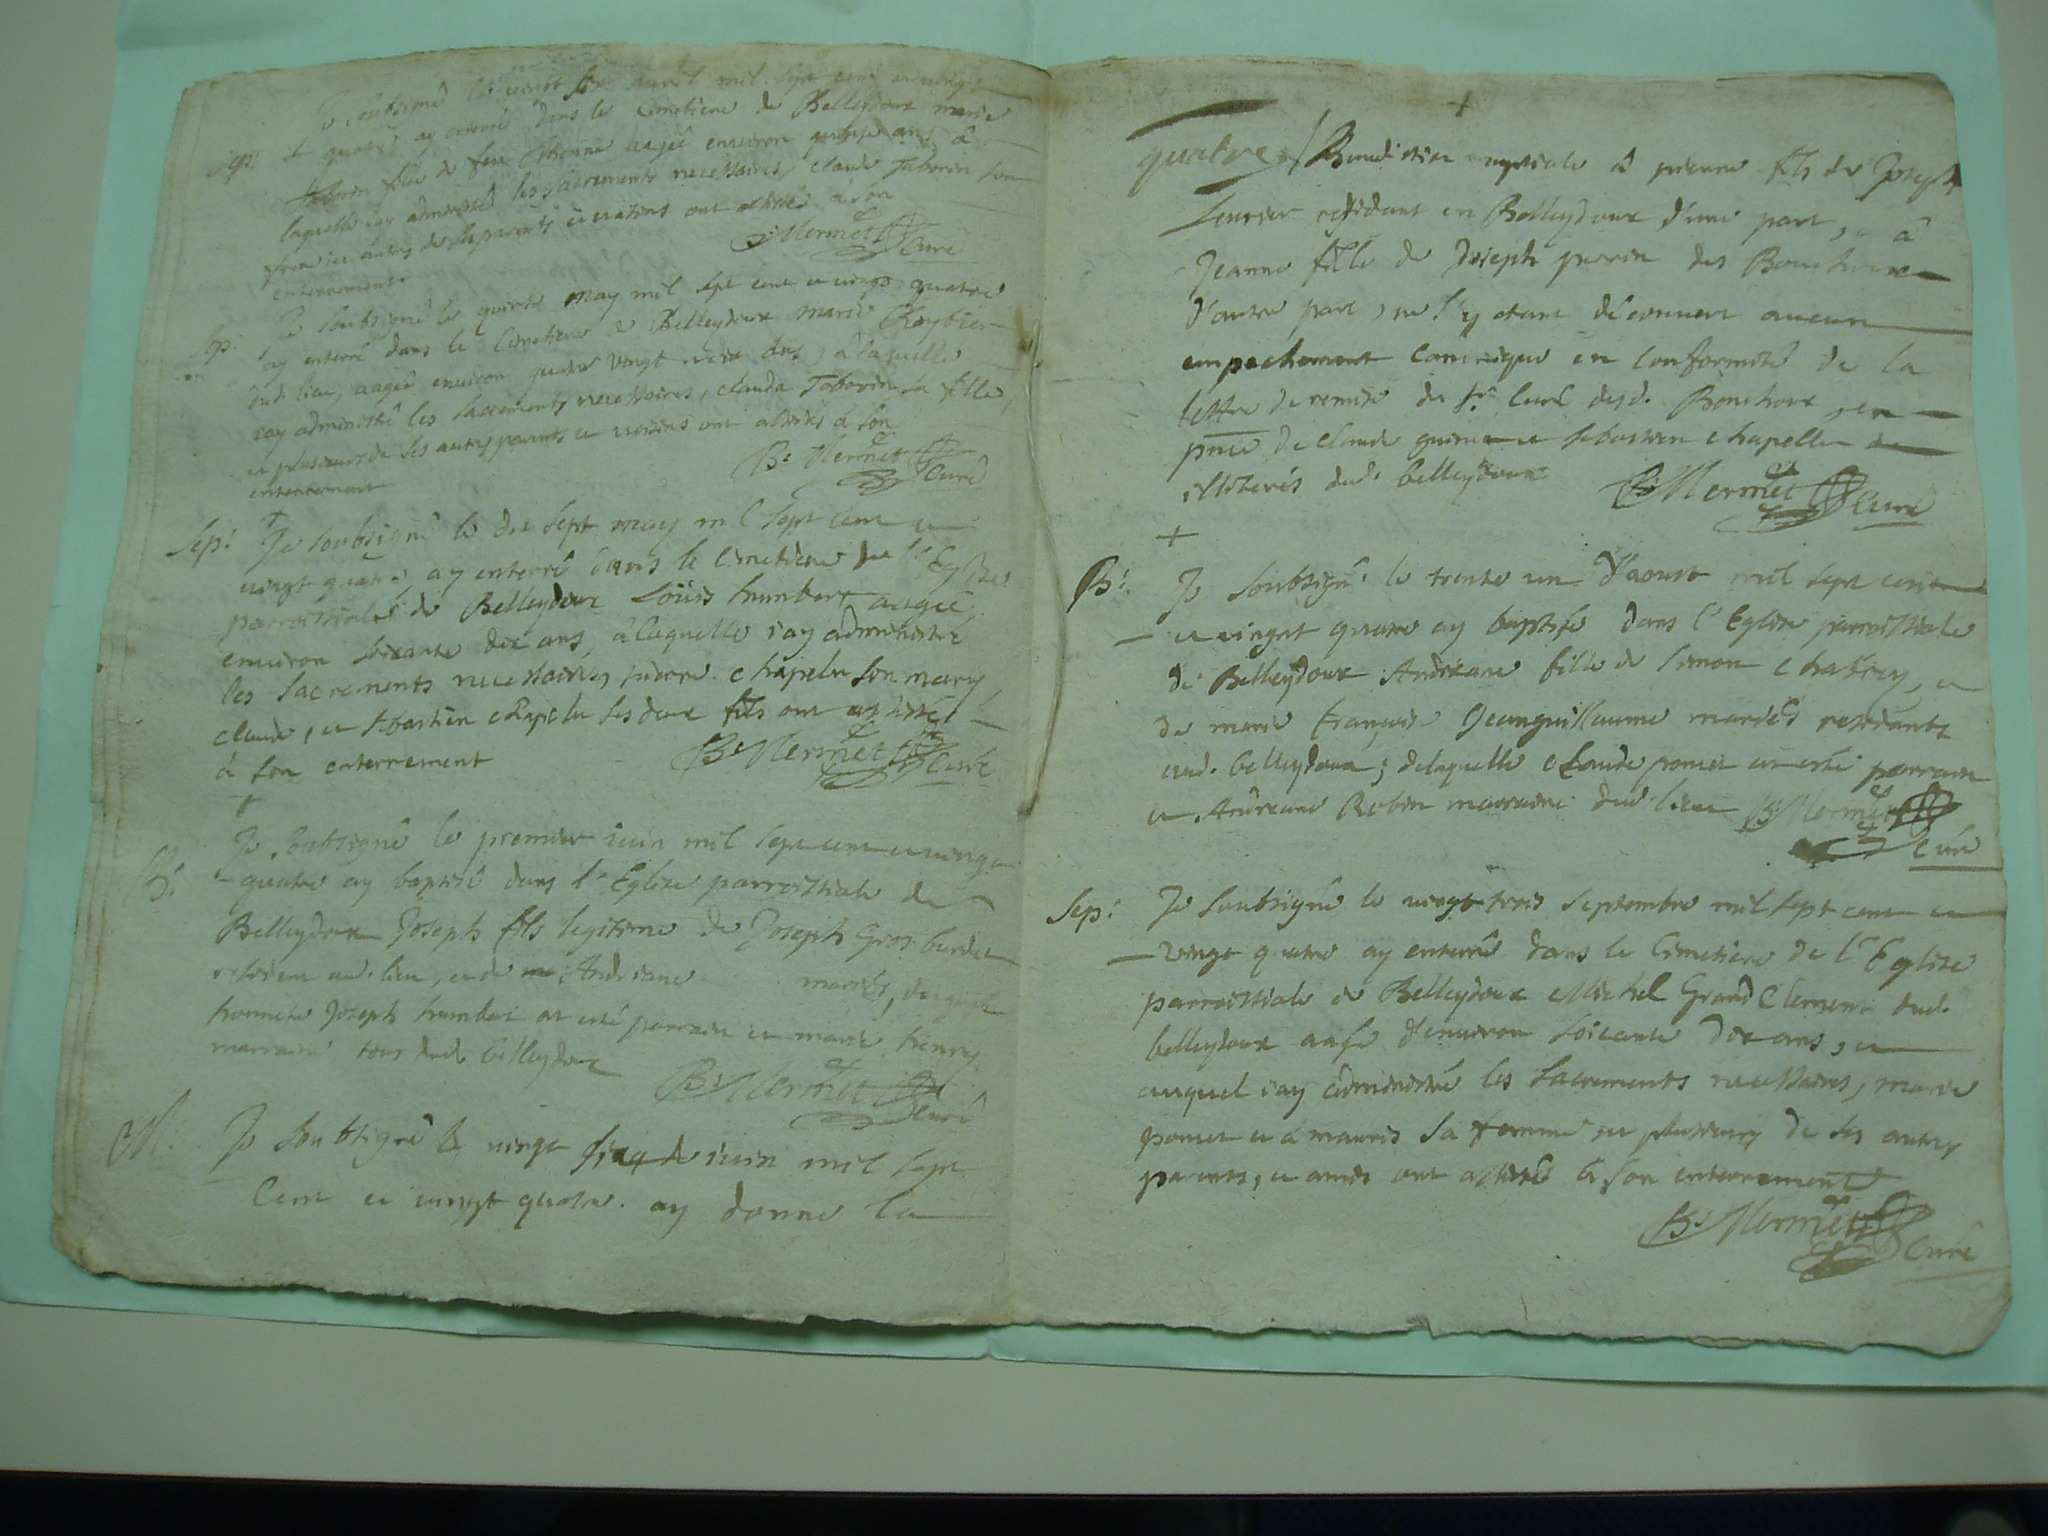 Je soubsigné le vingt six avril mil sept cent et vingt
Sep: et quatre ay enterré dans le Cimetiere de Belleydoux marie
Taborin fille de feu Estienne aagée environ quinze ans, à
laquelle iay administré les sacrements necessaires, claude Taborin son
frere et autres de ses parents et voisins ont assistés à son
enterrement
Mermet Curé
Sep: Je soubsigné le quinze may mil sept cent et vingt quatre
ay enterré dans le Cimetiere de Belleydoux marie Reybier
dud. lieu, aagée environ quatre vingt ans, à laquelle
iay administré les sacrements necessaires, clauda Taborin sa fille,
et plusieurs de ses autres parents et voisins ont assistés à son
enterrement
Bd Mermet Curé
Sep: Je soubsigné le dix sept may mil sept cent et
vingt quatre, ay enterré dans le Cimetiere de l'Eglise
parroissiale de Belleydoux Loüise humbert aagée
environ soixante dix ans, à laquelle i'ay administré
les sacrements necessaires, pierre chapelu son mary,
claude, et sebastien chapelu ses deux fils ont assistés
à son enterrement
Bd Mermet Curé
B: Je soubsigné le premier iuin mil sept cent et vingt
quatre ay baptisé dans l'Eglise parroissiale de
Belleydoux Joseph fils legitime de Joseph Gros burdet
resident aud. lieu, et de Andreane mariés, duquel
honneste Joseph humbert at esté parrain et marie henry
marraine tous dud. belleydoux
Bd Mermet Curé
M: Je soubsigné le vingt six de iuin mil sept
Cent et vingt quatre ay donné la
quatre / Benediction nuptiale à pierre fils de Joseph
residant en Belleydoux d'une part, et à
Jeanne fille de Joseph perrin des Bouchoux
d'autre part, ne s'y etant découvert aucun
empechement Canonique en conformité de la
lettre de remise du Sr. Curé desd. Bouchoux, en
pnce de claude et sebastien chapellu
illiterés dud. belleydoux
Bd Mermet Curé
B: Je soubsigné le trente un d'aoust mil sept cent
et vingt quatre ay baptisé dans l'Eglise parroissiale
de Belleydoux Andreane fille de simon chatrey, et
de marie françoise Jeanguillaume mariés residants
aud. belleydoux; de laquelle claude poncet at esté parrain
et Andreane Robin marraine dud. lieu Bd Mermet
Curé
Sep: Je soubsigné le vingt trois septembre mil sept cent et
vingt quatre ay enterré dans le Cimetiere de l'Eglise
parroissiale de Belleydoux Michel Grand Clement dud.
belleydoux aagé d'environ soixante dix ans, et
auquel i'ay administré les sacrements necessaires, marie
poncet sa femme et plusieurs de ses autres
parents, et amis ont assisté à son enterrement
Bd Mermet Curé